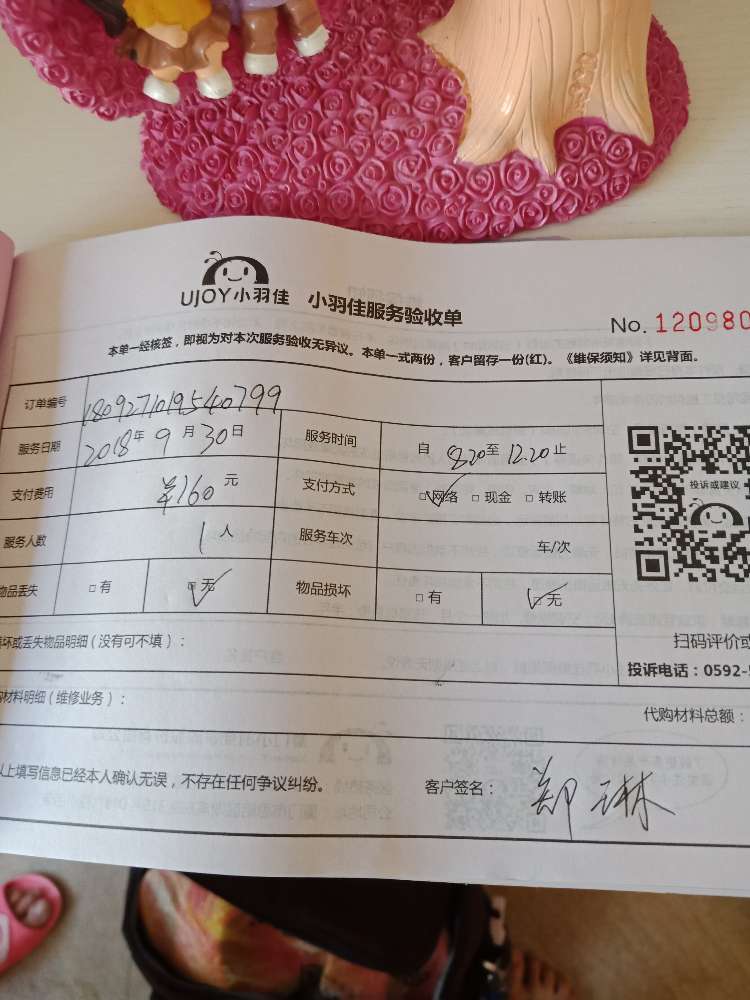 UJOY小羽佳 小羽佳服务验收单
No. 120980
本单一经核签，即视为对本次服务验收无异议。本单一式两份，客户留存一份(红)。《维保须知》详见背面。
订单编号 1809271019540799
服务日期 2018年 9 月 30 日 服务时间 自 8.20 至 12.20 止
支付费用 ¥160 元 支付方式 □网络 □现金 □转账
服务人数 1 人 服务车次 车/次
物品丢失 □有 □无 物品损坏 □有 □无
投诉或建议
扫码评价或
投诉电话：0592-5
损坏或丢失物品明细（没有可不填）：
购材料明细（维修业务）：
代购材料总额：
以上填写信息已经本人确认无误，不存在任何争议纠纷。 客户签名：郑琳